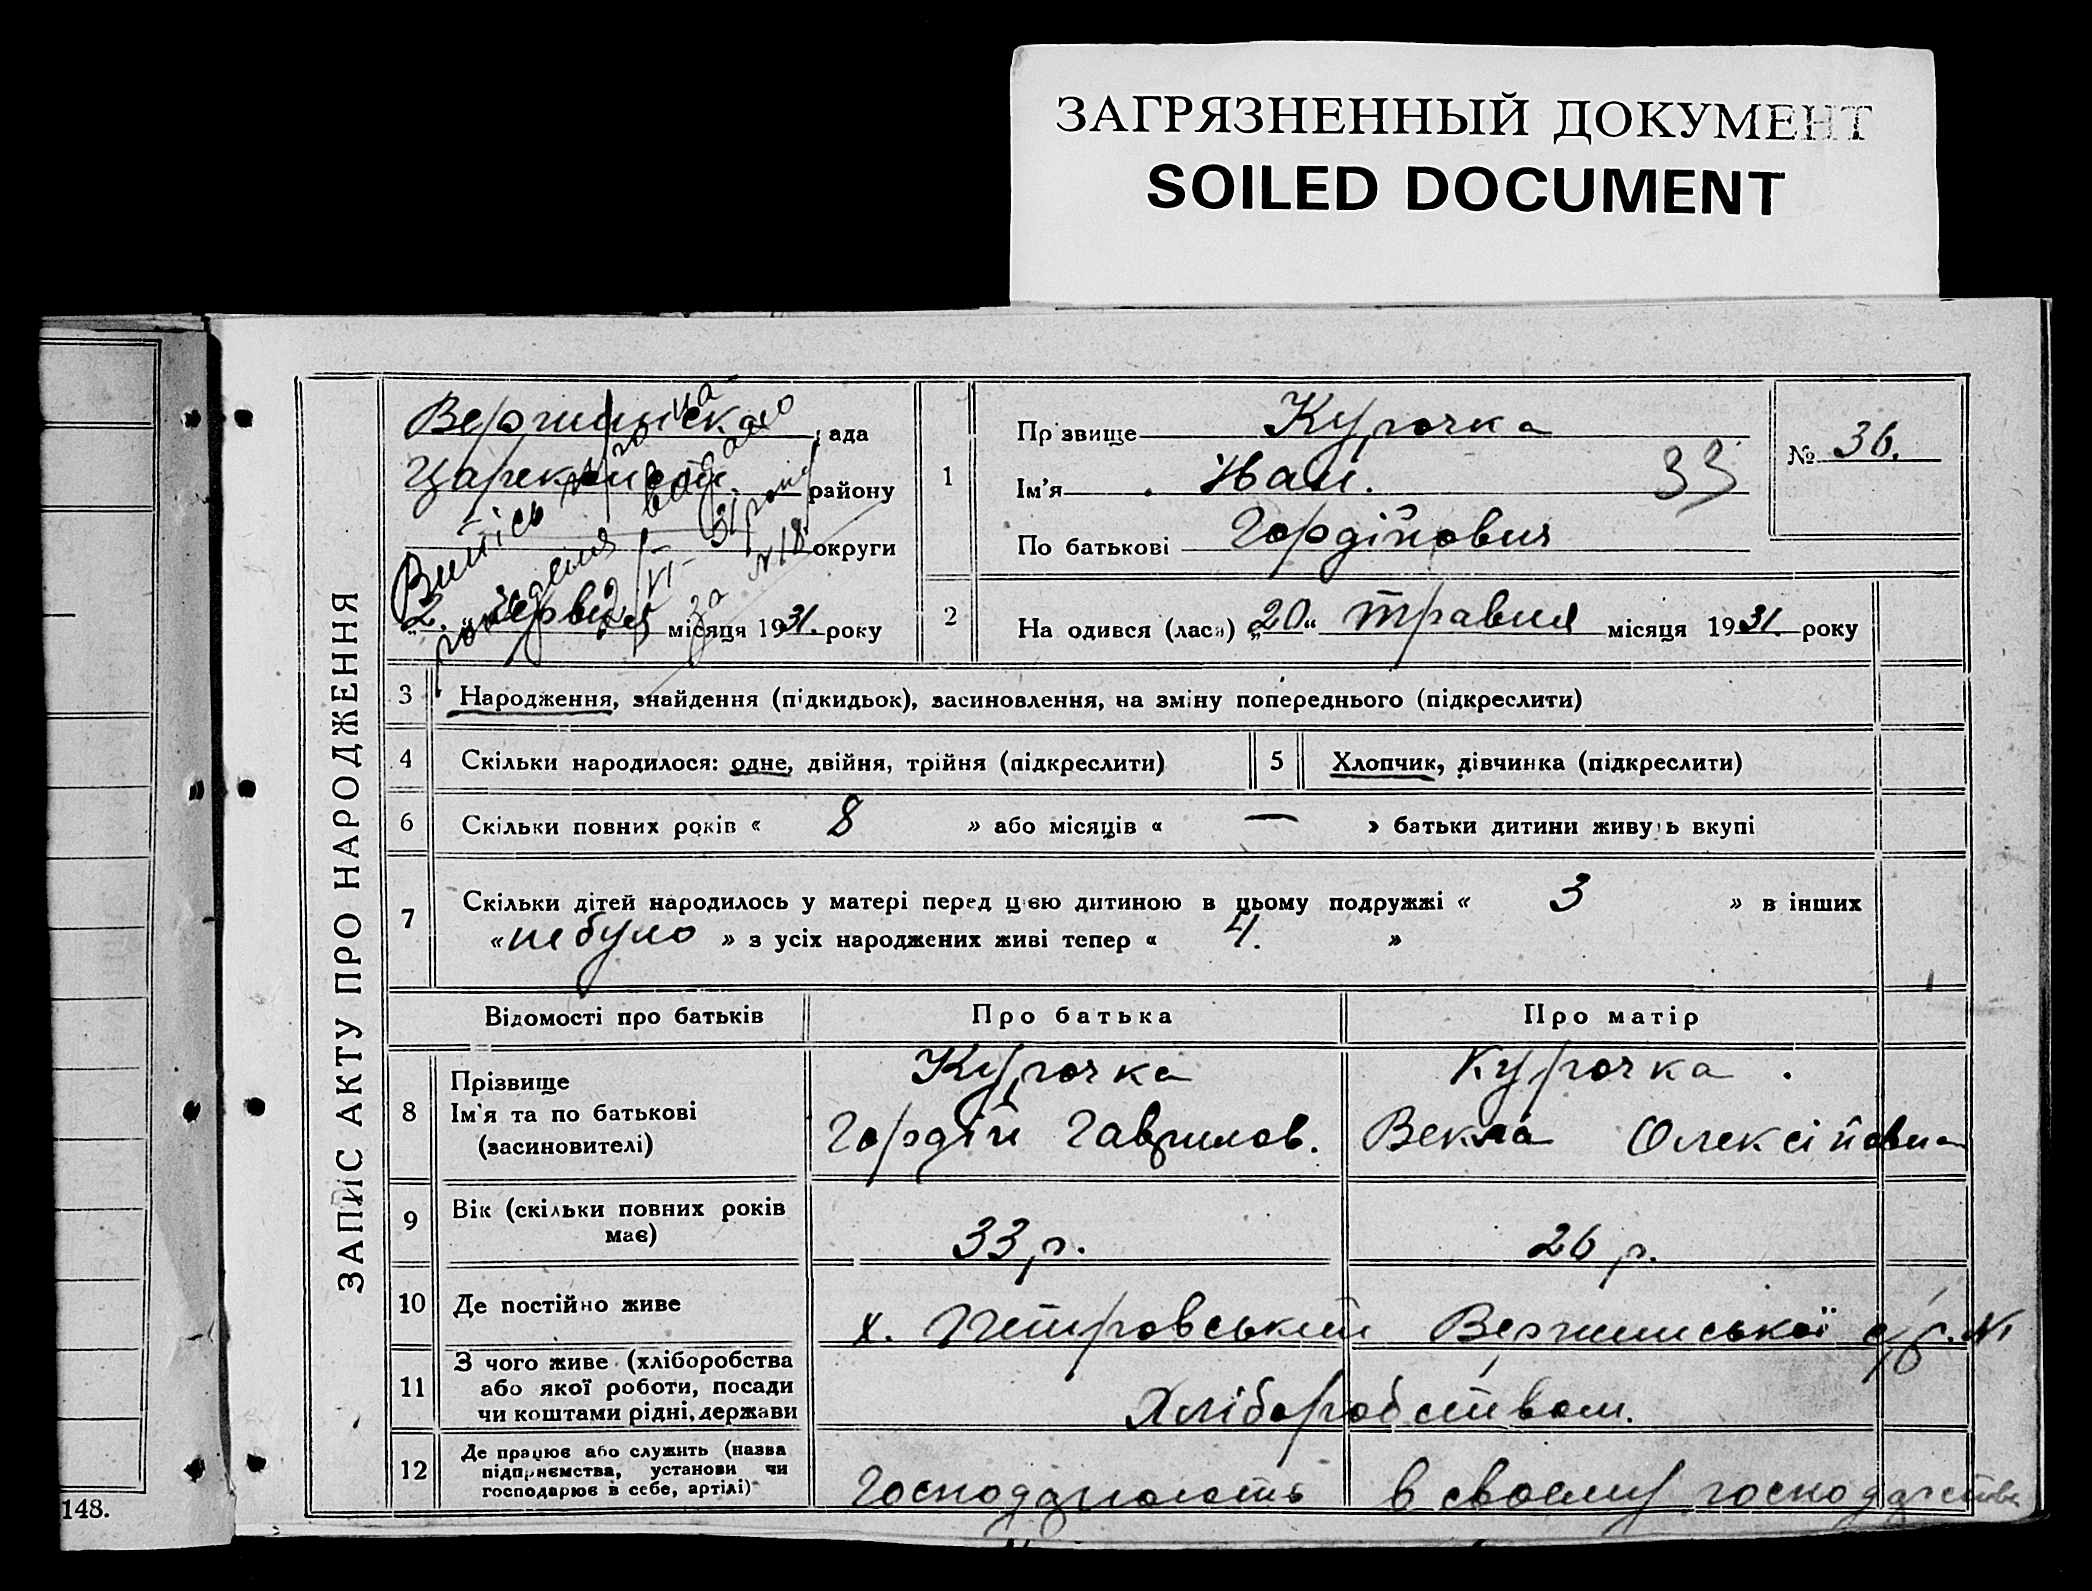 ЗАГРЯЗНЕННЫЙ ДОКУМЕНТ
SOILED DOCUMENT
ЗАПИС АКТУ ПРО НАРОДЖЕННЯ
рада
району
округи
Випісь на
народження
VI – 31 року
за №18
2. червня місяця 1931. року
1
Прізвище Курочка
Ім'я Иван. 33
По батькові Гордійович
№ 36.
2
На одився (лася) „20“ травня місяця 1931. року
3 Народження, знайдення (підкидьок), засиновлення, на зміну попереднього (підкреслити)
4 Скільки народилося: одне, двійня, трійня (підкреслити)
5 Хлопчик, дівчинка (підкреслити)
6 Скільки повних років « 8 » або місяців « — » батьки дитини живуть вкупі
7 Скільки дітей народилось у матері перед цією дитиною в цьому подружжі « 3 » в інших
«не було » з усіх народжених живі тепер « 4. »
Відомості про батьків Про батька Про матір
8 Прізвище Курочка Курочка
Ім'я та по батькові Гордій Гаврилов. Векла Олексіївна
(засиновителі)
9 Вік (скільки повних років
має) 33 р. 26 р.
10 Де постійно живе х. Петровський
11 З чого живе (хліборобства
або якої роботи, посади
чи коштами рідні, держави Хліборобством.
12 Де працює або служить (назва
підприємства, установи чи
господарює в себе, артілі) Господарюють в своєму господарстві
148.